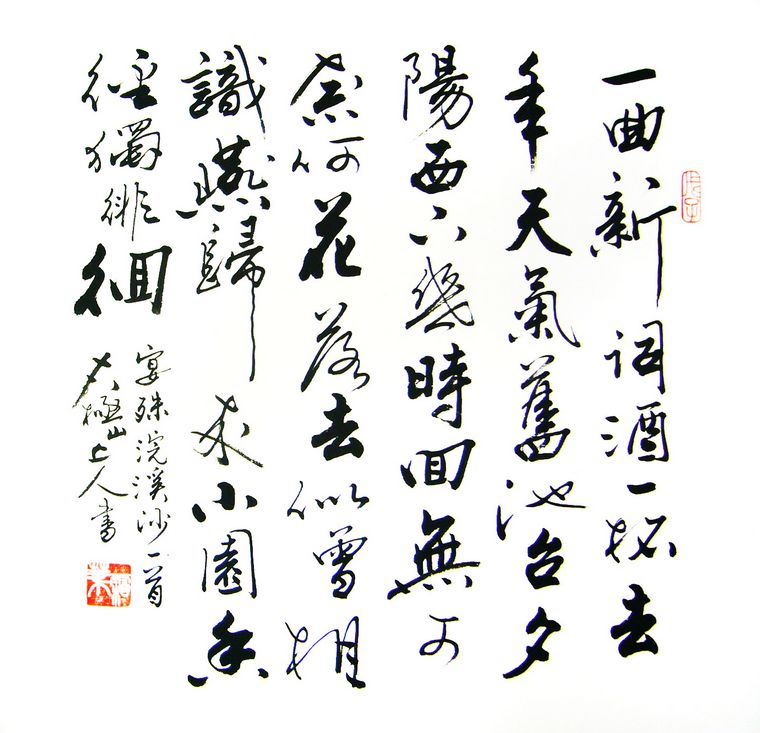 一曲新词酒一杯去
年天氣舊池台夕
陽西下幾時回無可
奈何花落去似曾相
識燕歸来小園香
徑獨徘徊
宴殊浣溪沙一首
太極山上人書